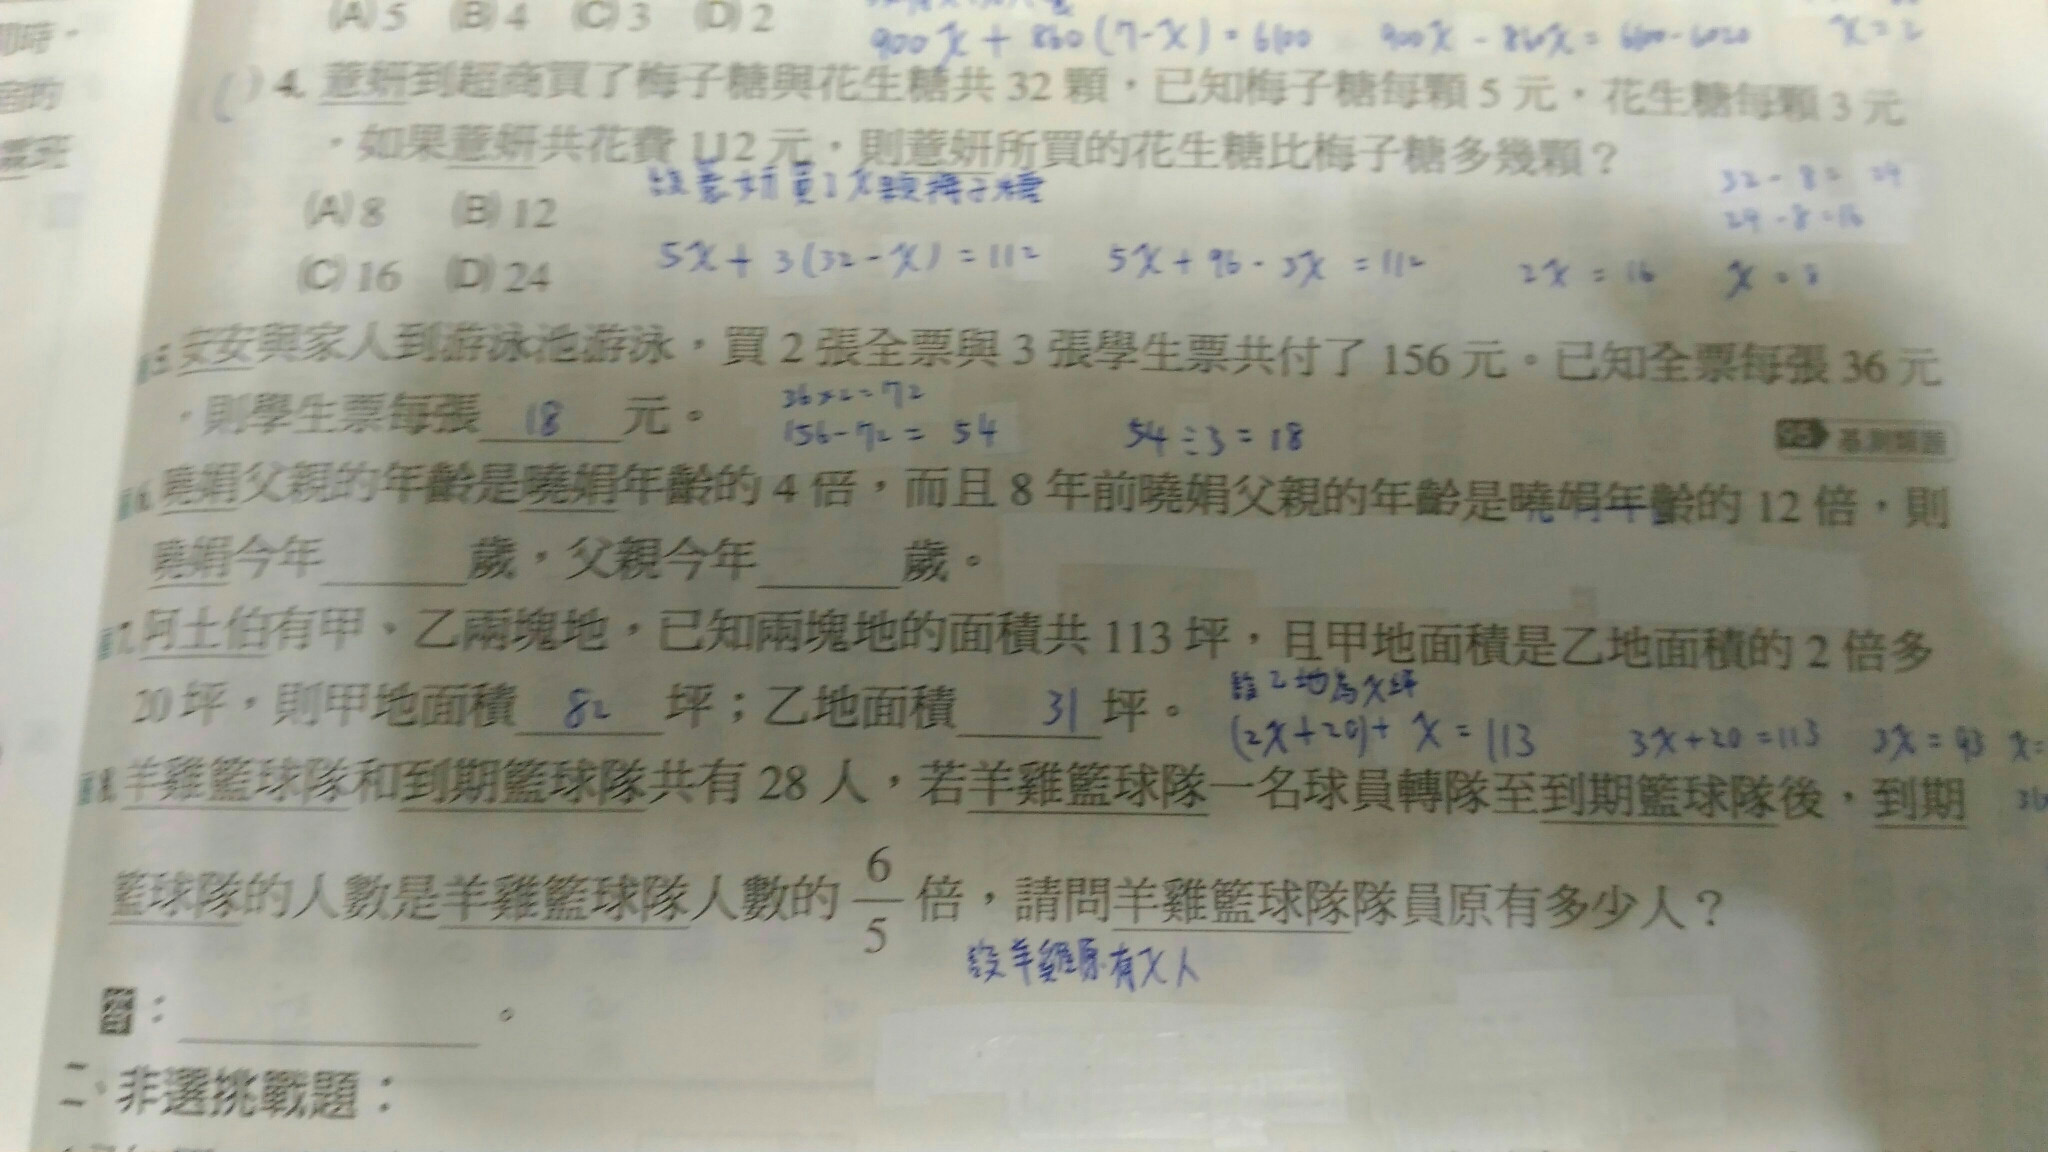 (A) 5 (B) 4 (C) 3 (D) 2
900x + 860(7-x) = 6100 900x - 860x = 6100-6020 x = 2
( C ) 4. 薏妍到超商買了梅子糖與花生糖共 32 顆，已知梅子糖每顆 5 元，花生糖每顆 3 元
，如果薏妍共花費 112 元，則薏妍所買的花生糖比梅子糖多幾顆？
設薏妍買了x顆梅子糖
32-8=24
24-8=16
(A) 8 (B) 12
(C) 16 (D) 24
5x + 3(32-x) = 112 5x + 96 - 3x = 112 2x = 16 x = 8
5. 安安與家人到游泳池游泳，買 2 張全票與 3 張學生票共付了 156 元。已知全票每張 36 元
，則學生票每張 18 元。
36×2=72
156-72=54 54÷3=18
95 基測類題
6. 曉娟父親的年齡是曉娟年齡的 4 倍，而且 8 年前曉娟父親的年齡是曉娟年齡的 12 倍，則
曉娟今年______歲，父親今年______歲。
7. 阿土伯有甲、乙兩塊地，已知兩塊地的面積共 113 坪，且甲地面積是乙地面積的 2 倍多
20 坪，則甲地面積 82 坪；乙地面積 31 坪。
設乙地為x坪
(2x+20)+ x = 113 3x+20=113 3x = 93 x=
8. 羊雞籃球隊和到期籃球隊共有 28 人，若羊雞籃球隊一名球員轉隊至到期籃球隊後，到期
籃球隊的人數是羊雞籃球隊人數的 6/5 倍，請問羊雞籃球隊隊員原有多少人？
設羊雞原有x人
答：____________。
二、非選挑戰題：